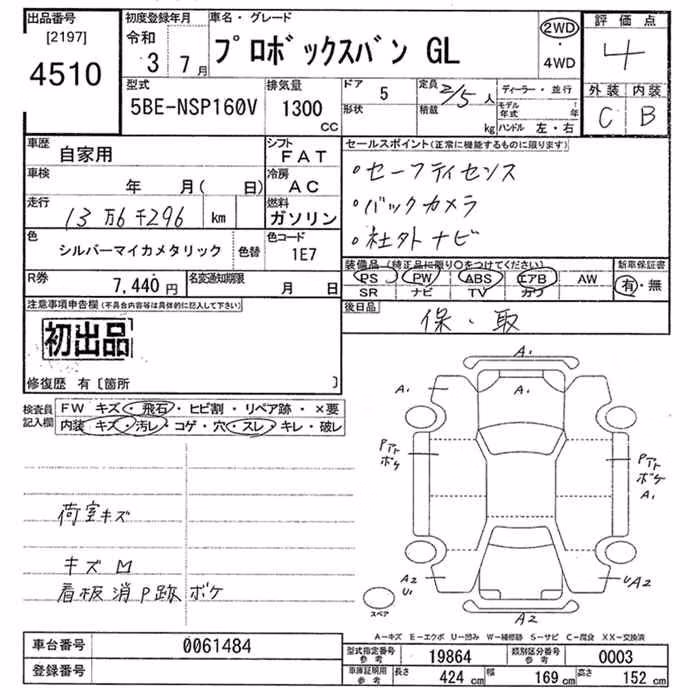 出品番号
[2197]
4510
初度登録年月
令和 3 7月
車名・グレード
プロボックスバン GL
2WD
・
4WD
評価点
4
外装 内装
C B
型式
5BE-NSP160V
排気量
1300
CC
ドア
5
形状
定員 2/5人
積載
kg
ディーラー・並行
モデル年式 年
ハンドル 左・右
車歴
自家用
シフト
FAT
車検
年 月( 日)
冷房
AC
走行
13万6千296 km
燃料
ガソリン
色
シルバーマイカメタリック 色替
色コード
1E7
R券
7,440円
名変通知期限
月 日
セールスポイント(正常に機能するものに限ります)
・セーフティセンス
・バックカメラ
・社外ナビ
装備品(純正品に限り〇をつけてください)
PS PW ABS エアB AW
SR ナビ TV カワ
新車保証書
有・無
後日品
保・取
注意事項申告欄(不具合内容等は具体的に記入して下さい)
初出品
修復歴 有〔箇所 〕
検査員記入欄
FW キズ・飛石・ヒビ割・リペア跡・×要
内装 キズ・汚レ・コゲ・穴・スレ・キレ・破レ
荷室キズ
キズ M
看板消P跡ボケ
A1
A1
A1
Pアト
ボケ
Pアト
ボケ
A1
A2
U1
UA2
A2
スペア
A-キズ E-エクボ U-凹み W-補修跡 S-サビ C-腐食 XX-交換済
車台番号
0061484
登録番号
型式指定番号
参考
19864
類別区分番号
参考
0003
車庫証明用
参考
長さ 424 cm
幅 169 cm
高さ 152 cm